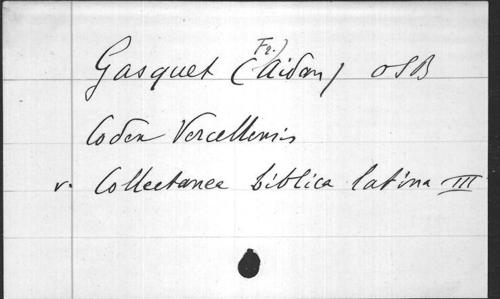 Gasquet (Fr.) Aidan) OSB
Codex Vercellensis
v. Collectanea biblica latina III